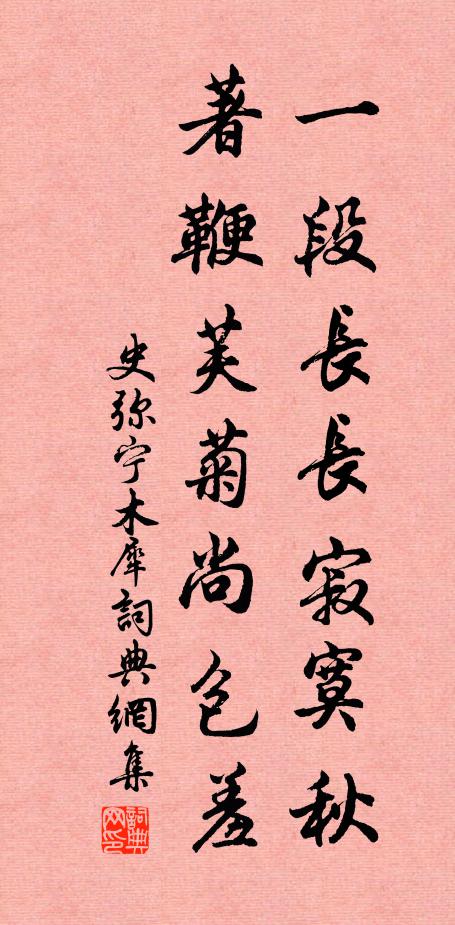 一段長長寂寞秋
著鞭芙菊尚包羞
史弥宁木犀詞典網集
詞典网印